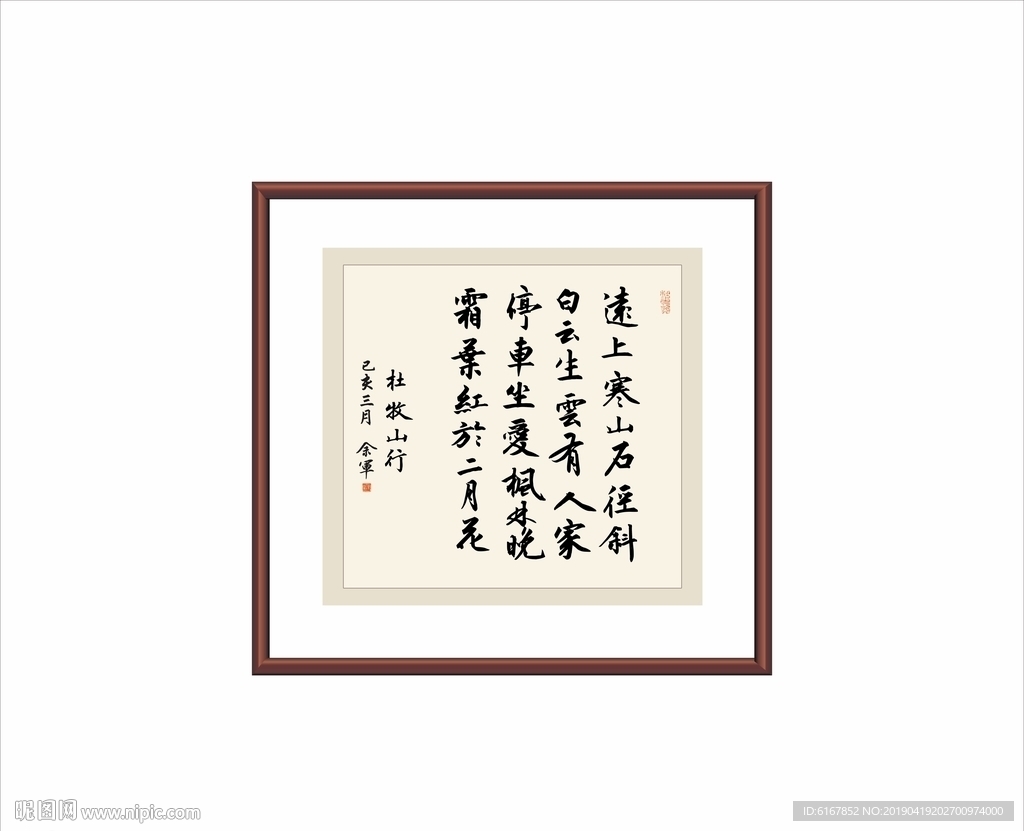 遠上寒山石徑斜
白云生雲有人家
停車坐愛楓林晚
霜葉紅於二月花
杜牧山行
己亥三月 余軍
昵图网 www.nipic.com
ID:6167852 NO:20190419202700974000